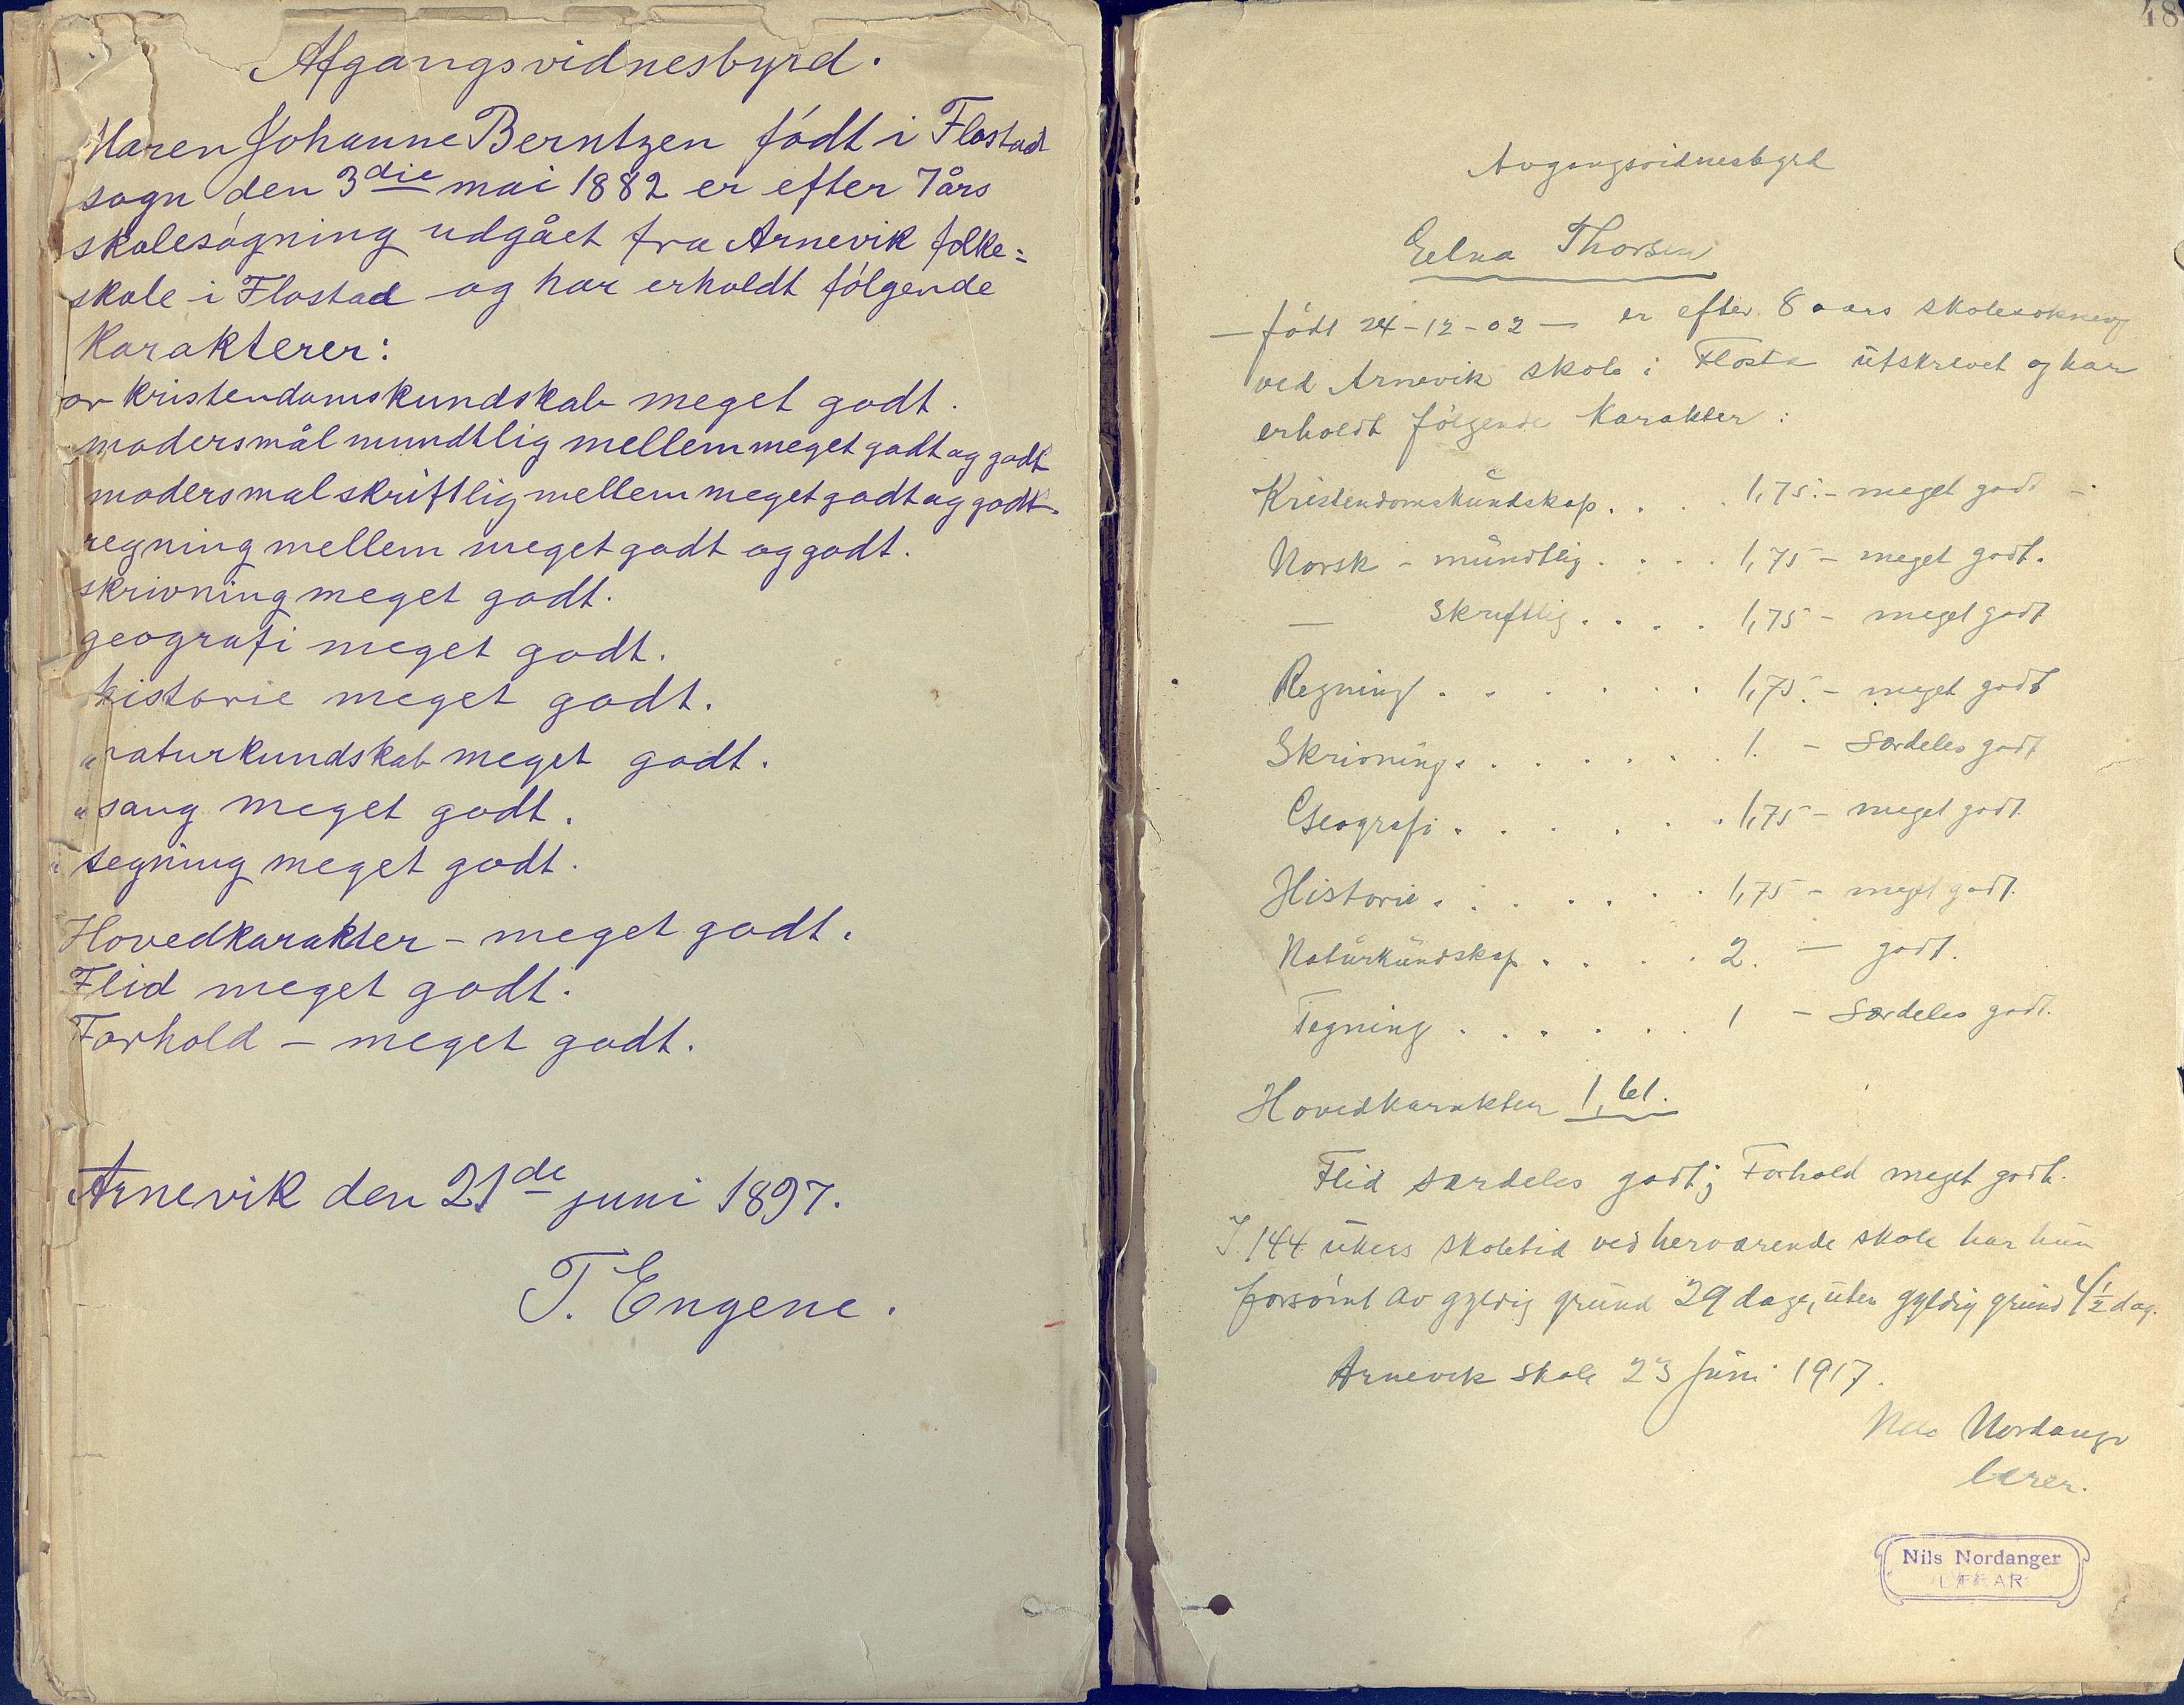 Afgangsvidnesbyrd.
Maren Johanne Berntzen födt i Flostad
sogn den 3die mai 1882 er efter 7 års
skolesögning udgået fra Arnevik folke=
skole i Flostad og har erholdt fölgende
karakterer:
kristendomskundskab meget godt.
modersmål mundtlig mellem meget godt og godt
modersmal skriftlig mellem meget godt og godt.
regning mellem meget godt og godt.
skrivning meget godt.
geografi meget godt.
historie meget godt.
" naturkundskab meget godt.
" sang meget godt.
" tegning meget godt.
Hovedkarakter – meget godt.
Flid meget godt.
Forhold – meget godt.
Arnevik den 21de juni 1897.
T. Engene.
48
Avgangsvidnesbyrd
Thorsen
– födt 24-12-02 – er efter 8 aars skolesökning
ved Arnevik skole i Flosta utskrevet og har
erholdt fölgende karakter:
Kristendomskundskap. . . . 1,75. – meget godt –
Norsk – mundtlig . . . . 1,75 – meget godt.
— Skriftlig . . . . 1,75 – meget godt
Regning . . . . . . 1,75. – meget godt
Skrivning . . . . . . 1. – Særdeles godt
Geografi . . . . . . 1,75 – meget godt.
Historie . . . . . . 1,75 – meget godt.
Naturkundskap . . . . 2. — godt.
Tegning . . . . . . 1 – Særdeles godt.
Hovedkarakter 1,61.
Flid særdeles godt; Forhold meget godt.
I 144 ukers skoletid ved herværende skole har hun
forsömt av gyldig grund 29 dage, uten gyldig grund 4½ dag.
Arnevik skole 23 juni 1917.
Nils Nordanger
lærer.
Nils Nordanger
LÆRAR